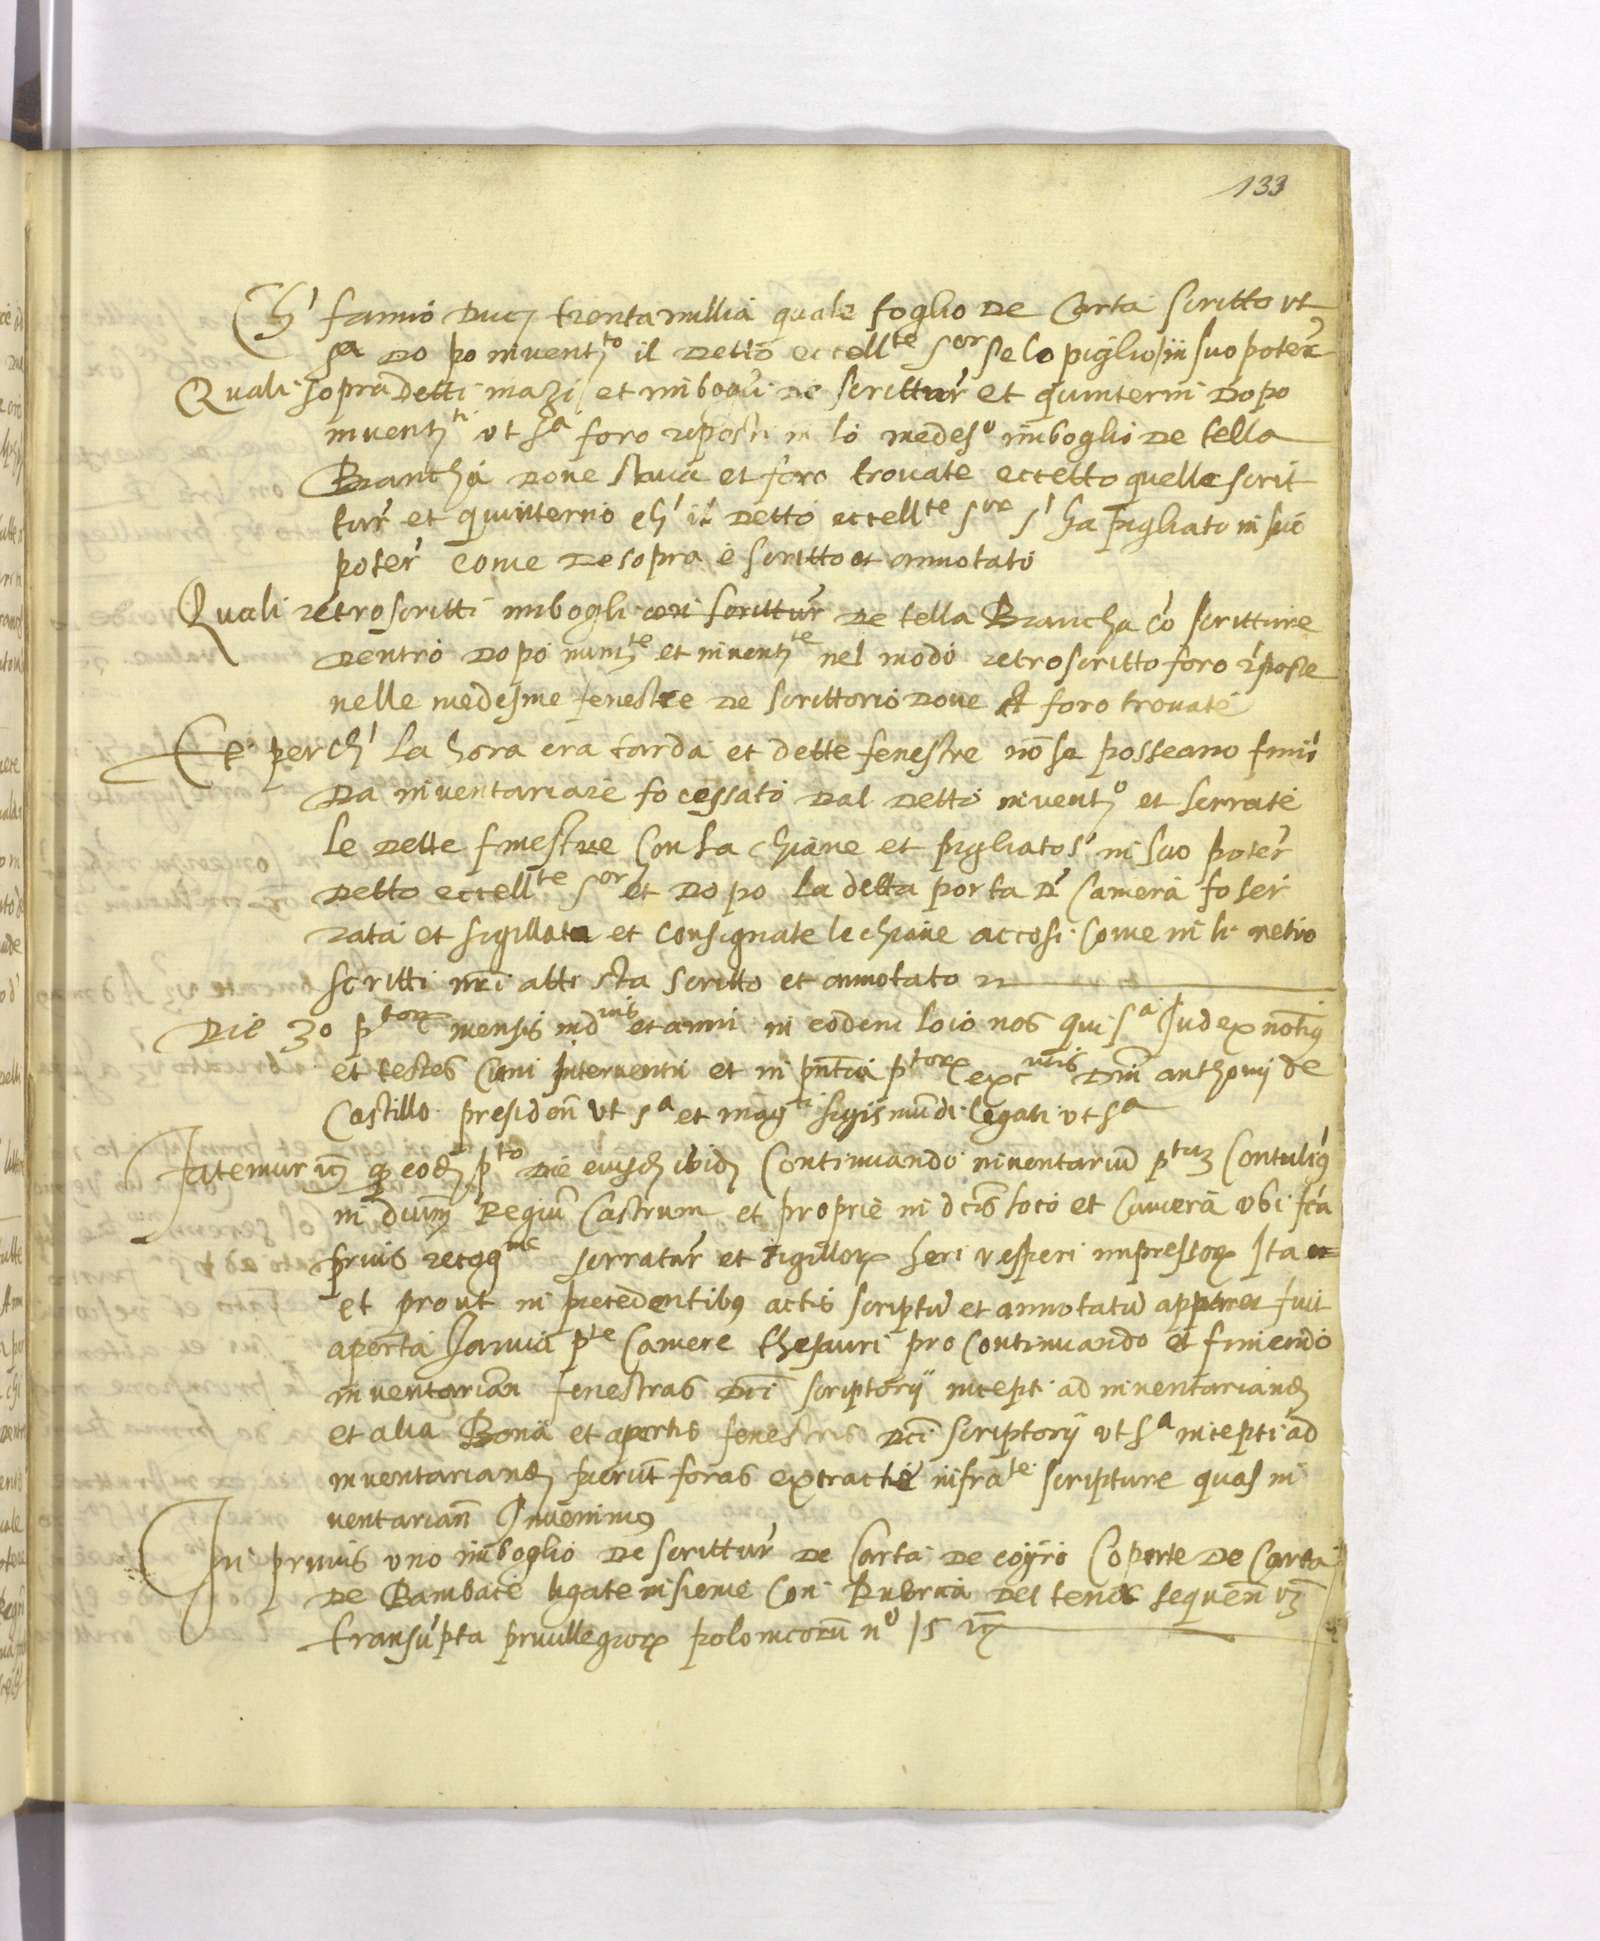 133
Ch' fanno Duc. trentamillia quale foglio de Carta scritto ut
sª dopo inventto il detto eccellte sor se lo piglio in suo poter
Quali sopradetti mazi et imbogli de scrittur' et quinterni dopo
inventti ut sª foro reposti in lo medeso imboglio de tella
Biancha dove stava et foro trovate eccetto quelle scrit
tur' et quinterno ch' il detto eccellte sore s' ha pigliato in suo
poter' come de sopra è scritto et annotato
Quali retroscritti imbogli con scrittur' de tella Biancha cō scritture
dentro dopo numte et inventte nel modo retroscritto foro r'poste
nelle medesme fenestre de scrittorio dove foro trovate
Et perch' la hora era tarda et dette fenestre nō se posseano finir
da inventariare fo cessato dal detto invento et serrate
le dette finestre con la chiave et pigliatos' in suo poter'
detto eccellte sor et dopo la detta porta d' Camera fo ser
rata et sigillata et consignate le chiave accosi come in li retro
scritti nri atti sta scritto et annotato
Die 30 ptorum mensis indnis et anni in eodem loco nos qui sª Judex notus
et testes cum interventu et in pntia ptorum excntis Dni anthonij de
Castillo presiden ut sª et magci sigismundi legati ut sª
Fatemur q eod pto die eiusd ibid Continuando inventariū ptum Contuliq'
in dium Regiū Castrum et proprie in dcis loco et Camera ubi fca
prius recogne serratur' et sigillorum heri vesperi impressorum Ita
et prout in precedentibus actis scriptū et annotatū apparet fuit
aperta Janua pte Camere thesauri pro continuando et finiendo
inventarian fenestras dci scriptorij incepti ad inventariand
et alia Bona et apertis fenestris dci scriptorij ut sª incepti ad
inventariand fuerūt foras extracte infrate scripture quas in
ventarian Invenimus
In primis uno imboglio de scrittur' de Carta de coyro Coperte de Carta
de Bambace ligate insieme con Rubrica del tenor sequen vz
transupta privilegiorum polonicorū nº 15